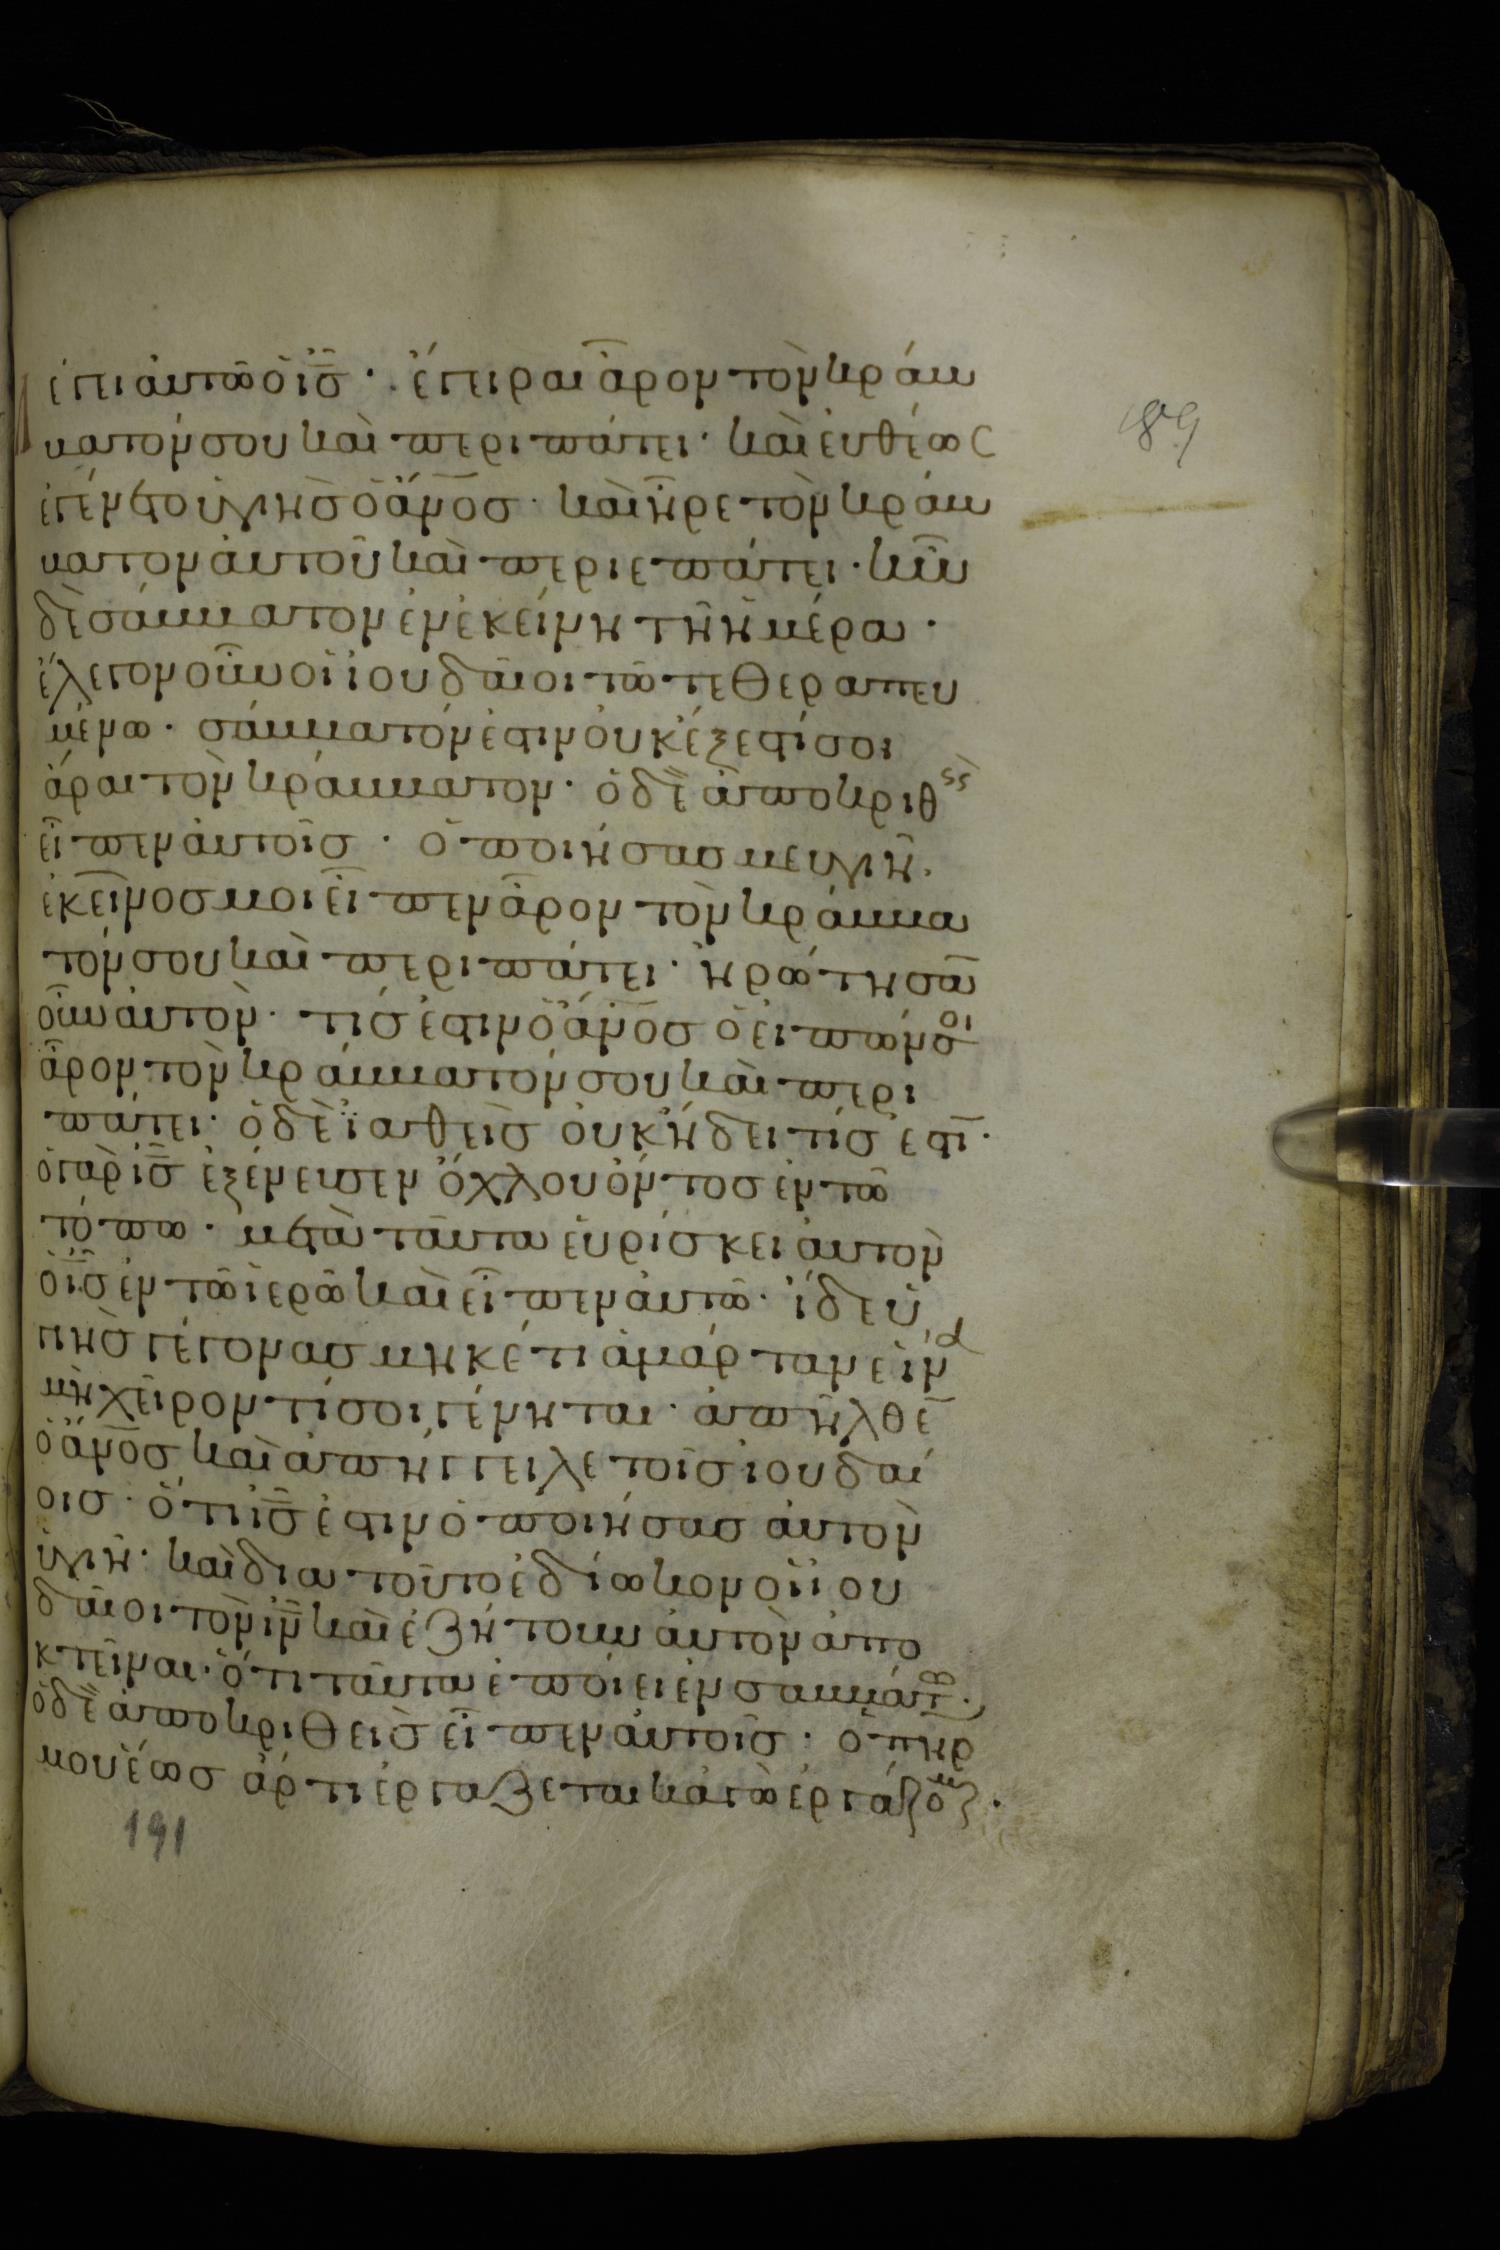 έγει αὐτῶ ὁ ι̅ς̅· ἔγειραι ἆρον τὸν κράβ
βατόν σου καὶ περιπάτει· καὶ εὐθέως
ἐγένετο ὑγιὴς ὁ ἄν̅ο̅ς· καὶ ἦρε τὸν κράβ
βατον αὐτοῦ καὶ περιεπάτει· ἦν
δὲ σάββατον ἐν ἐκείνη τῆ ἡμέρα·
ἔλεγον οὖν οἱ ἰουδαῖοι τῶ τεθεραπευ
μένω· σάββατόν ἐστιν οὐκ ἔξεστί σοι
ἆραι τὸν κράββατον· ὁ δὲ ἀποκριθεὶς
εἶπεν αὐτοῖς· ὁ ποιήσας με ὑγιῆ·
ἐκεῖνος μοι εἶπεν ἆρον τὸν κράββα
τόν σου καὶ περιπάτει· ἠρώτησαν
οὖν αὐτόν· τίς ἐστιν ὁ ἄν̅ο̅ς ὁ εἰπών σοι
ἆρον τὸν κράββατόν σου καὶ περι
πάτει· ὁ δὲ ἰαθεὶς οὐκ ἤδει τίς ἐστιν·
ὁ γὰρ ι̅ς̅ ἐξένευσεν ὄχλου ὄντος ἐν τῶ
τόπω· μετὰ ταῦτα εὑρίσκει αὐτὸν
ὁ ι̅ς̅ ἐν τῶ ἱερῶ καὶ εἶπεν αὐτῶ· ἴδε ὑ
γιὴς γέγονας μηκέτι ἁμάρτανε ἵνα
μὴ χεῖρον τί σοι γένηται· ἀπῆλθεν
ὁ ἄν̅ο̅ς καὶ ἀνήγγειλε τοῖς ἰουδαί
οις· ὅτι ι̅ς̅ ἐστιν ὁ ποιήσας αὐτὸν
ὑγιῆ· καὶ διατοῦτο ἐδίωκον οἱ ἰου
δαῖοι τὸν ι̅ν̅ καὶ ἐζήτουν αὐτὸν ἀπο
κτεῖναι· ὅτι ταῦτα ἐποίει ἐν σαββάτω·
ὁ δὲ ἀποκριθεὶς εἶπεν αὐτοῖς· ὁ π̅η̅ρ̅
μου ἕως ἄρτι ἐργάζεται κἀγὼ ἐργάζομαι·
89
191